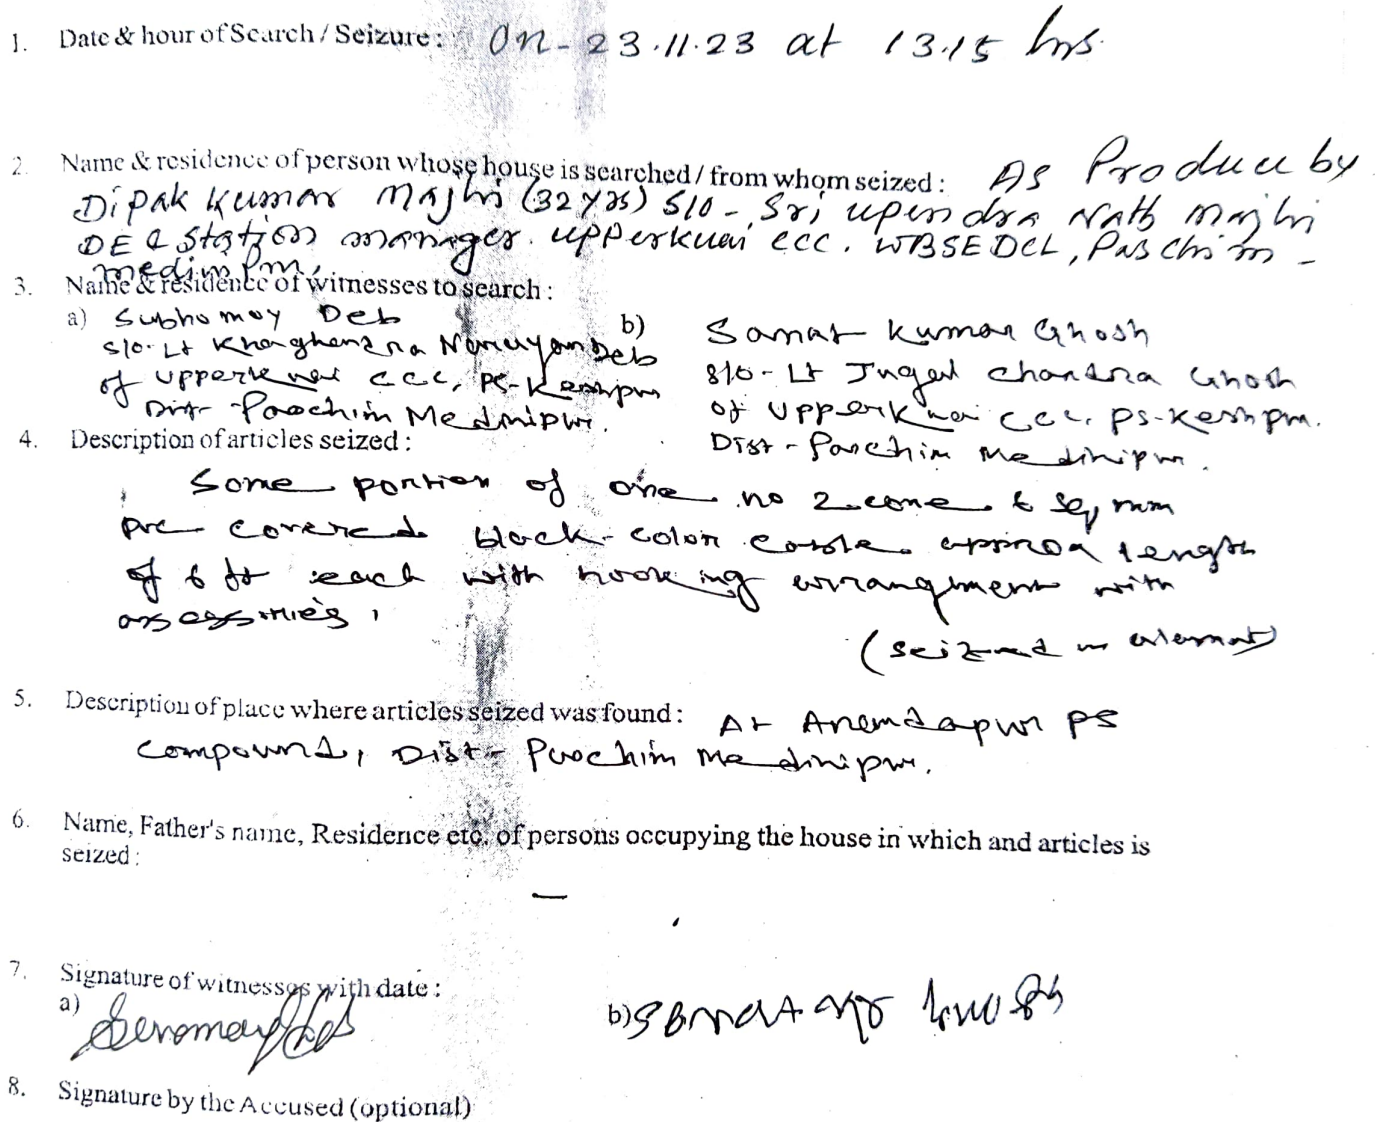 1. Date & hour of Search / Seizure: On - 23.11.23 at 13.15 hrs.
2. Name & residence of person whose house is searched / from whom seized : As Produce by
Dipak Kumar Majhi (32 yrs) S/O - Sri upendra Nath Majhi
DE & Station manager. upperkuai ccc. WBSEDCL, Paschim -
medinpm,
3. Name & residence of witnesses to search :
a) Subhomoy Deb
S/o- Lt Khaghendra Narayan Deb
of upperkuai ccc, PS-Keshpur
Dist- Paschim Medinipur.
b) Sanat Kumar Ghosh
S/o - Lt Jugal chandra Ghosh
of upperkuai ccc, PS-Keshpur.
Dist - Paschim Medinipur.
4. Description of articles seized :
Some portion of one no 2 core 6 sq mm
pvc covered black-color cable approx length
of 6 ft each with hooking arrangment with
assessories,
(seized in
5. Description of place where articles seized was found : At Anandapur PS
compound, Dist- Paschim Medinipur.
6. Name, Father's name, Residence etc. of persons occupying the house in which and articles is
seized :
—
7. Signature of witnesses with date :
a)
b) Sanat
8. Signature by the Accused (optional)